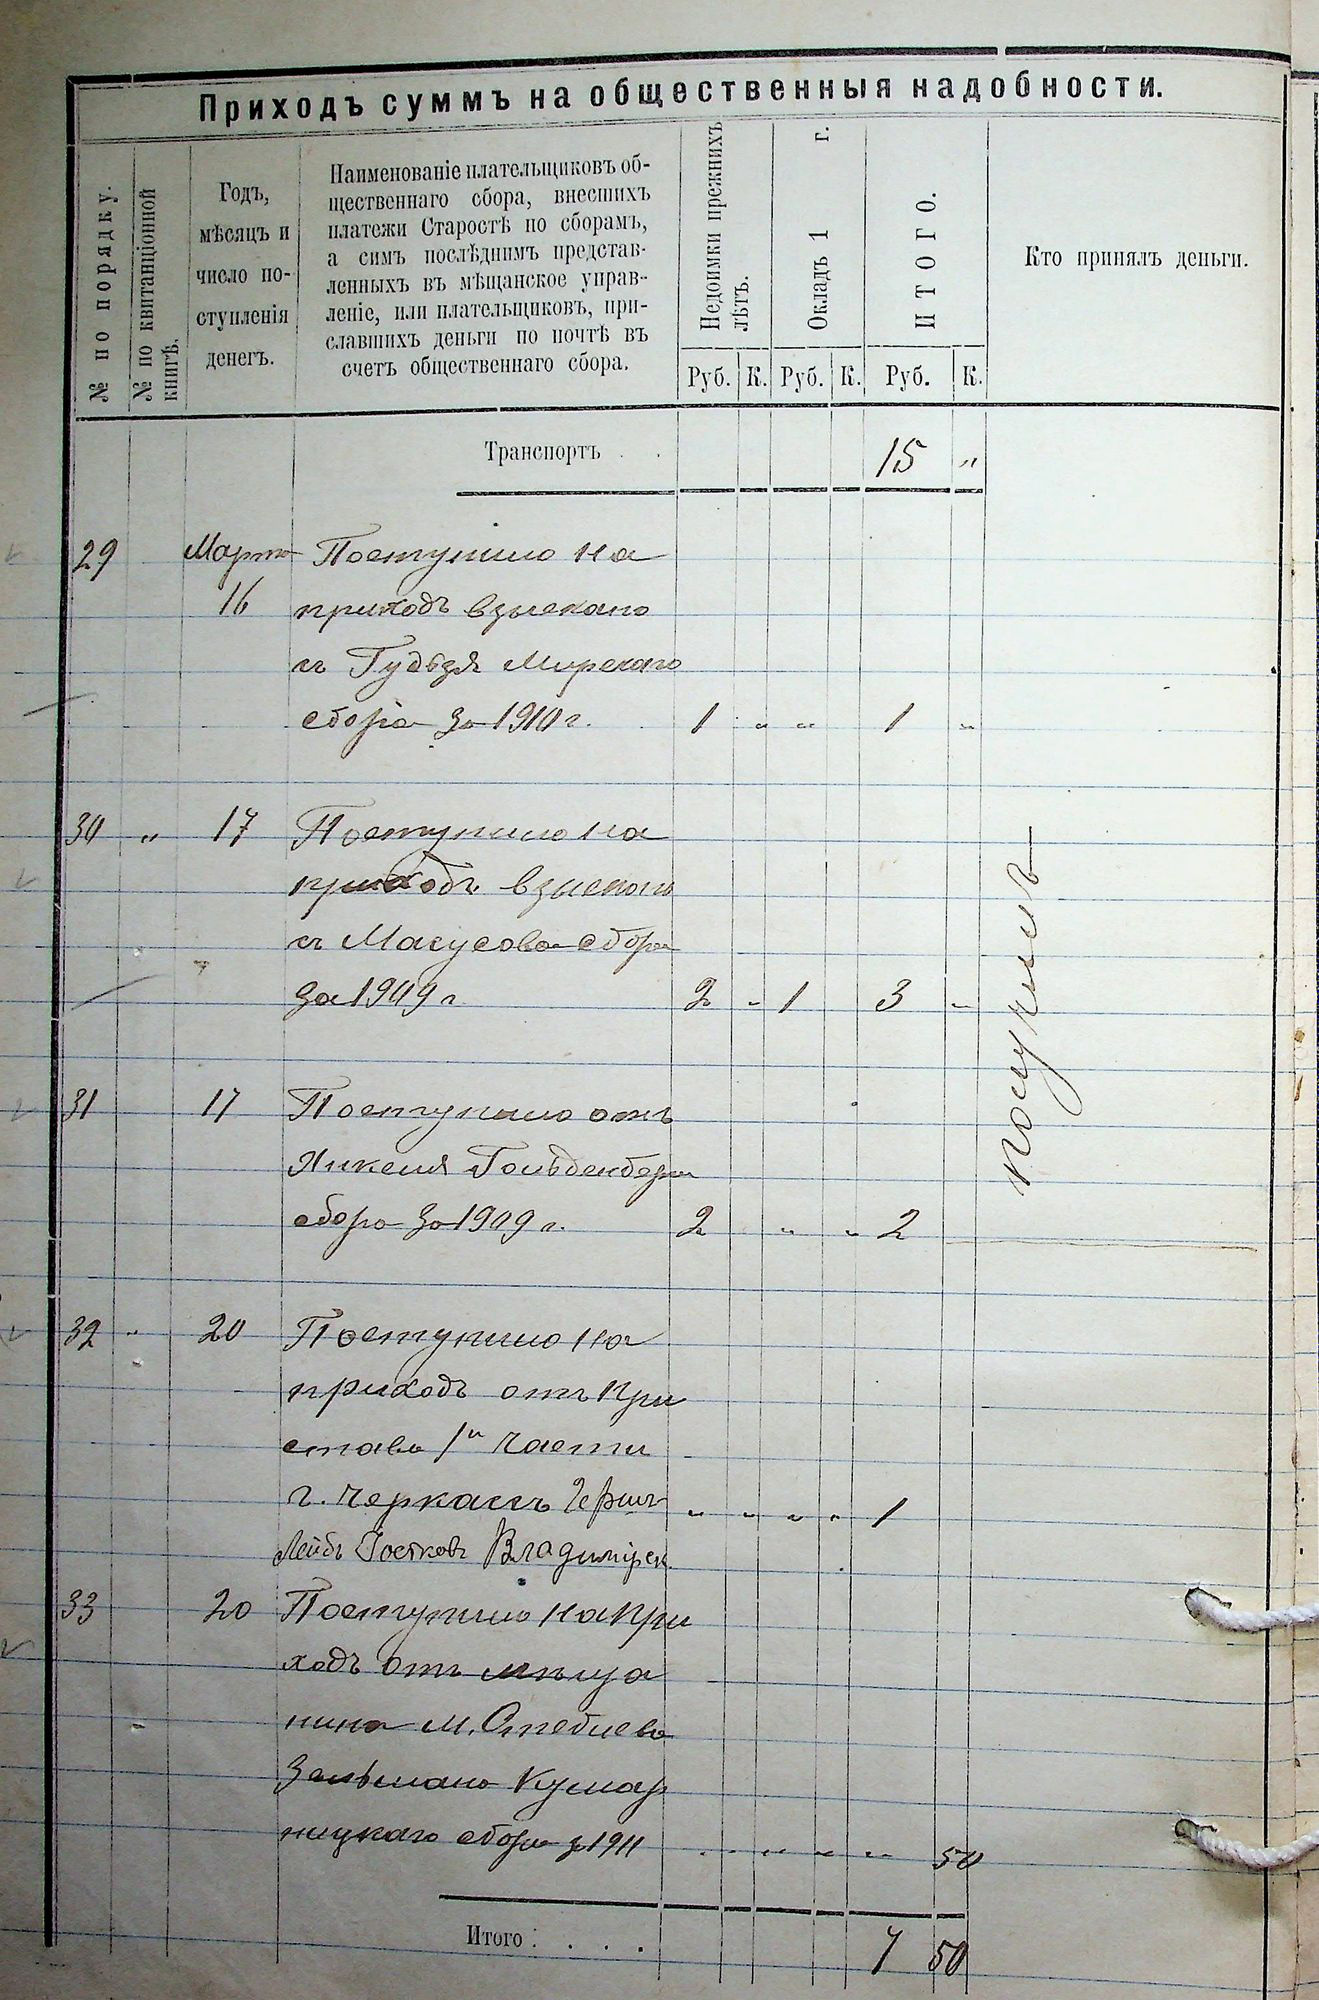 Приходъ суммъ на общественныя надобности.
№ по порядку.
№ по квитанціонной
книгѣ.
Годъ,
мѣсяцъ и
число по-
ступленія
денегъ.
Наименованіе плательщиковъ об-
щественнаго сбора, внесшихъ
платежи Старостѣ по сборамъ,
а симъ послѣднимъ представ-
ленныхъ въ мѣщанское управ-
леніе, или плательщиковъ, при-
славшихъ деньги по почтѣ въ
счетъ общественнаго сбора.
Недоимки прежнихъ
лѣтъ.
Окладъ 1 г.
ИТОГО.
Кто принялъ деньги.
Руб. К. Руб. К. Руб. К.
Транспортъ . . 15 "
29 Марта Поступило на
16 приходъ взыскано
съ Гудзя Мирскаго
сбора за 1910 г. 1 " " 1 "
30 " 17 Поступило на
приходъ взыскано
съ сбора
за 1909 г. 2 " 1 3 "
31 17 Поступило отъ
Гольденберга
сбора за 1909 г. 2 " " 2
получилъ
32 " 20 Поступило на
приходъ отъ При
става 1й части
г. Черкассъ Герш
Лейбъ Владимірск.
" " " " 1
33 20 Поступило на при
ходъ отъ мѣща
нина м. Стеблева
Зельмана Кушнар
ницкаго сбора за 1911 " " " " " 50
Итого . . . . 7 50